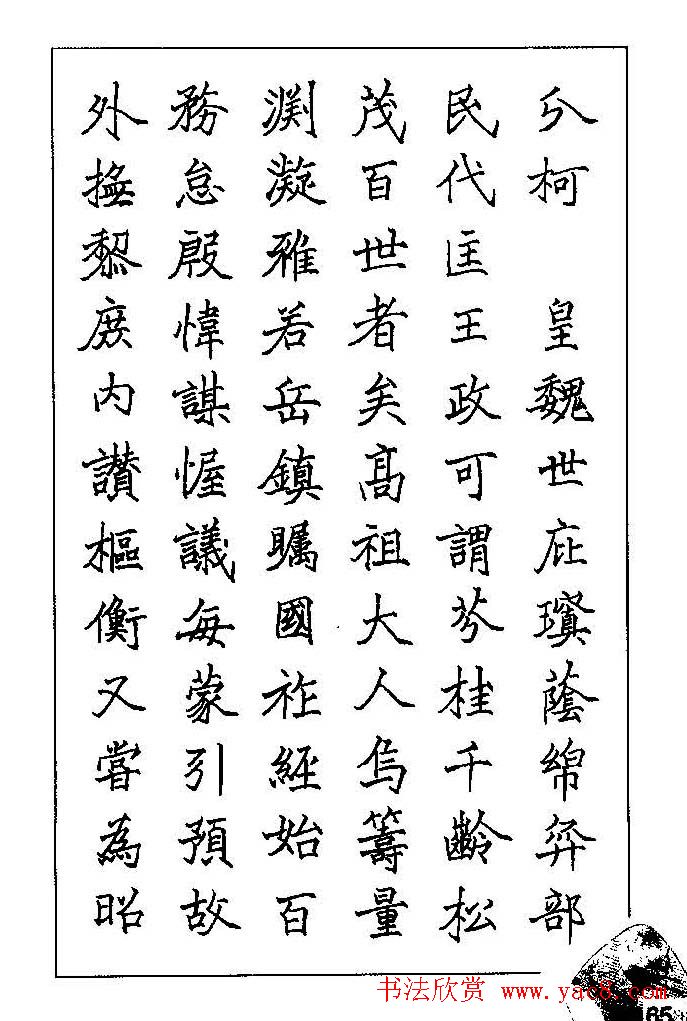 分柯　皇魏世庇瓊蔭綿弈部
民代匡王政可謂芬桂千齡松
茂百世者矣高祖大人烏籌量
淵凝雅若岳鎮矚國祚經始百
務怠殷幃謀幄議每蒙引預故
外撫黎庶内讃樞衡又嘗為昭
书法欣赏 www.yac8.com
65